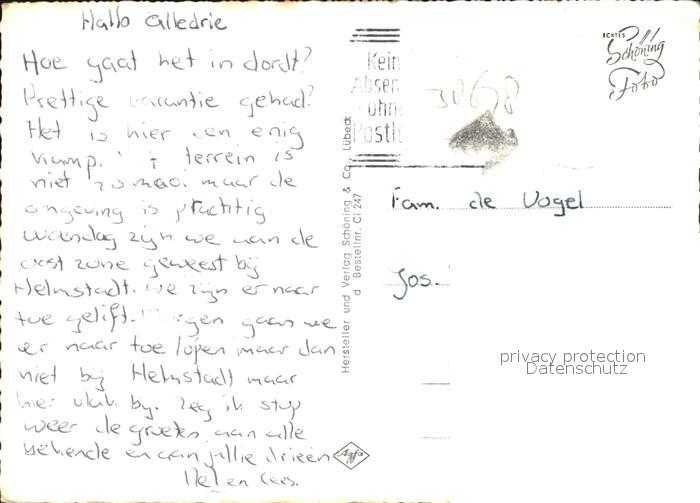 Hallo alledrie
Hoe gaat het in dordt?
Prettige vacantie gehad?
Het is hier een enig
kamp. terrein is
niet zo mooi maar de
omgeving is prachtig
Woensdag zijn we aan de
oost zone geweest bij
Helmstadt. we zijn er naar
toe gelift. Morgen gaan we
er naar toe lopen maar dan
niet bij Helmstadt maar
hier vlak bij. Zeg ik stop
weer de groeten aan alle
bekende en aan jullie drieën
en Cees.
Kein
Absen
ohn
Postl
30658
ECHTES
Schöning
Foto
Hersteller und Verlag Schöning & Co., Lübeck
d Bestellnr. Ci 247
Fam. de Vogel
Jos.
privacy protection
Datenschutz
Agfa